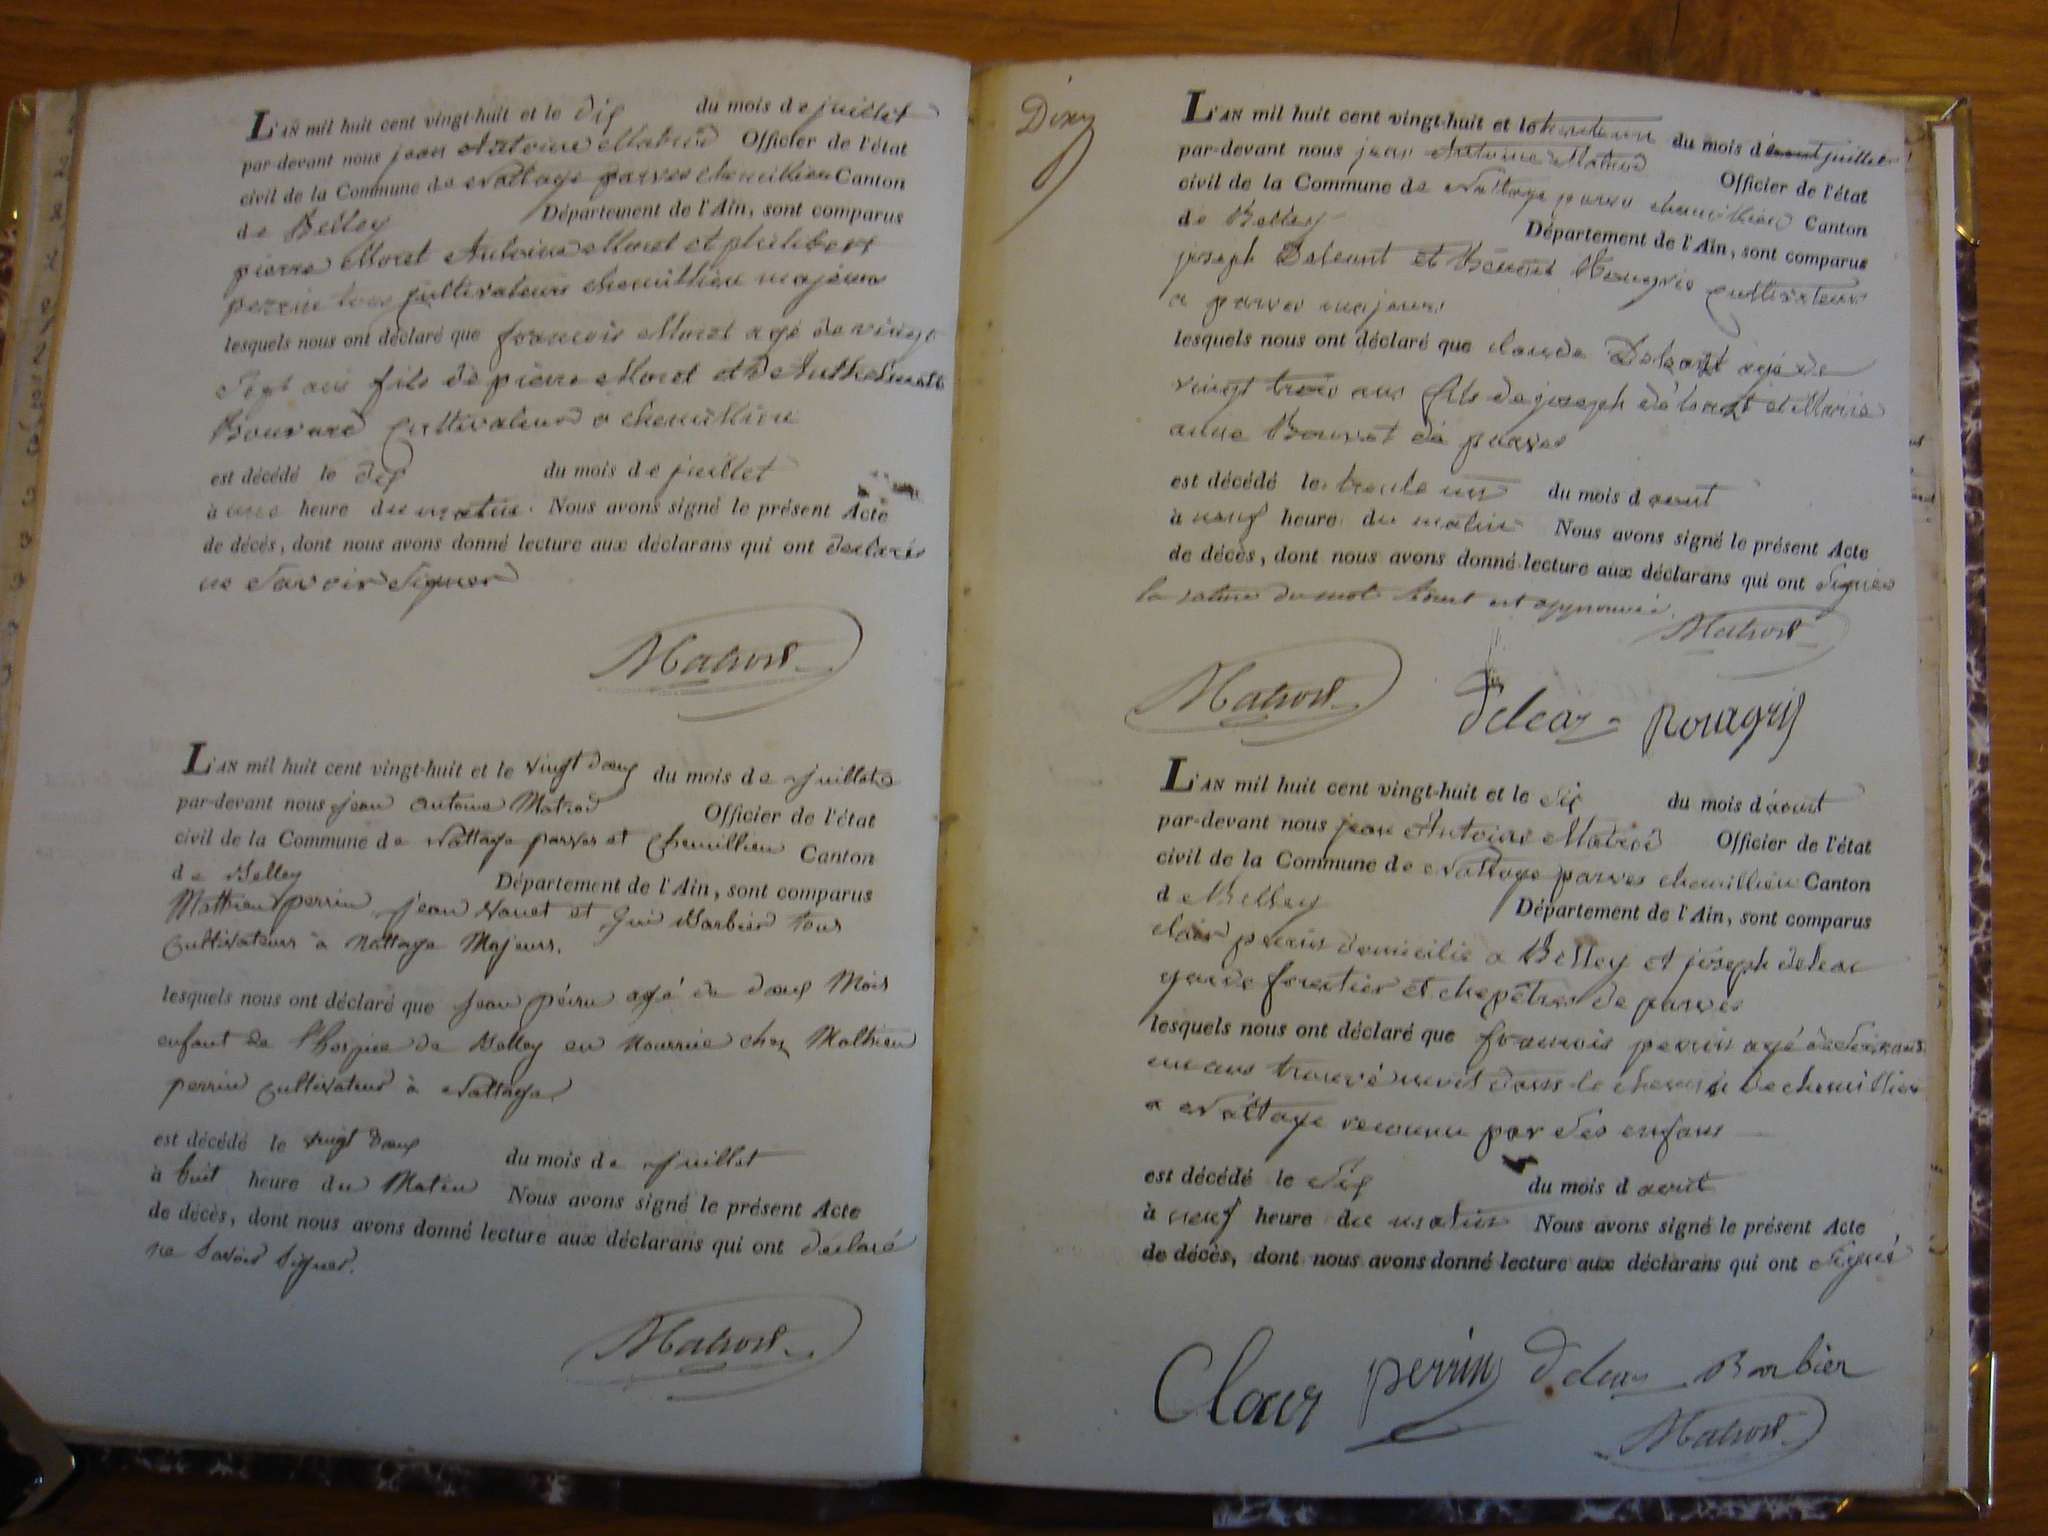 L'AN mil huit cent vingt-huit et le dix du mois de juillet
par-devant nous jean Antoine Matrod Officier de l'état
civil de la Commune de Nattage parves chemillieu Canton
de Belley Département de l'Ain, sont comparus
pierre Moret Antoine Moret et philibert
perrin tous cultivateurs chemillieu majeurs
lesquels nous ont déclaré que francois Moret agé de vingt
sept ans fils de pierre Moret et d'Anthelmette
Bouvard cultivateur a chemillieu
est décédé le dix du mois de juillet
à une heure du matin. Nous avons signé le présent Acte
de décès, dont nous avons donné lecture aux déclarans qui ont declarés
ne savoir signer
Matrod
L'AN mil huit cent vingt-huit et le vingt deux du mois de juillet
par-devant nous jean antoine Matrod Officier de l'état
civil de la Commune de Nattage parves et Chemillieu Canton
de Belley Département de l'Ain, sont comparus
Mathieu perrin jean et Barbier tous
cultivateurs à Nattage Majeurs.
lesquels nous ont déclaré que jean agé de deux Mois
enfant de l'hospice de Belley en Nourrice chez Mathieu
perrin cultivateur à Nattage
est décédé le vingt deux du mois de juillet
à huit heure du Matin Nous avons signé le présent Acte
de décès, dont nous avons donné lecture aux déclarans qui ont déclaré
ne savoir signer.
Matrod
L'AN mil huit cent vingt-huit et le trente un du mois d'aout juillet
par-devant nous jean Antoine Matrod Officier de l'état
civil de la Commune de Nattage parves chemillieu Canton
de Belley Département de l'Ain, sont comparus
joseph et Benoit cultivateurs
a parves majeurs
lesquels nous ont déclaré que claude agé de
vingt trois ans fils de joseph et Marie
anne de parves
est décédé le trente un du mois d aout
à neuf heure du matin Nous avons signé le présent Acte
de décès, dont nous avons donné lecture aux déclarans qui ont signés
la rature du mot aout est approuvée.
Matrod
Matrod Rougris
L'AN mil huit cent vingt-huit et le six du mois d'aout
par-devant nous jean Antoine Matrod Officier de l'état
civil de la Commune de Nattage parves chemillieu Canton
de Belley Département de l'Ain, sont comparus
clair perrin domicilié a Belley et joseph
garde forestier et chepêtre de parves
lesquels nous ont déclaré que francois perrin agé de
un ans trouvé mort dans le chemin de chemillieu
a Nattage reconnu par ses enfans
est décédé le six du mois d aout
à neuf heure du matin Nous avons signé le présent Acte
de décès, dont nous avons donné lecture aux déclarans qui ont signé
Clair perrin Barbier
Matrod